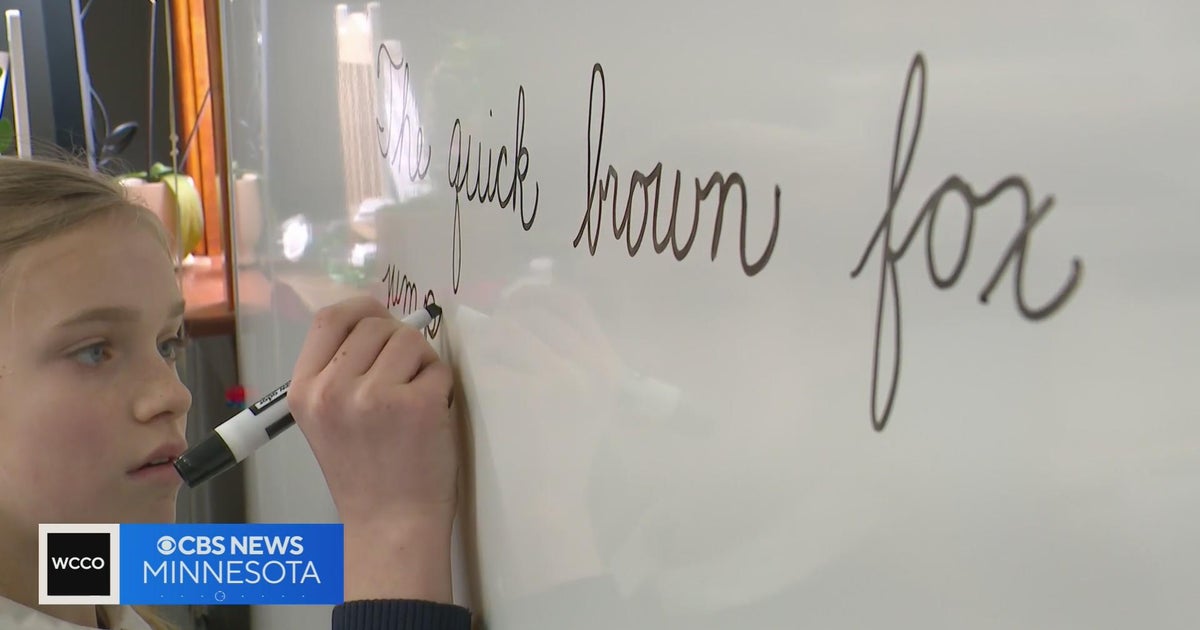 The quick brown fox
jump
WCCO
CBS NEWS
MINNESOTA